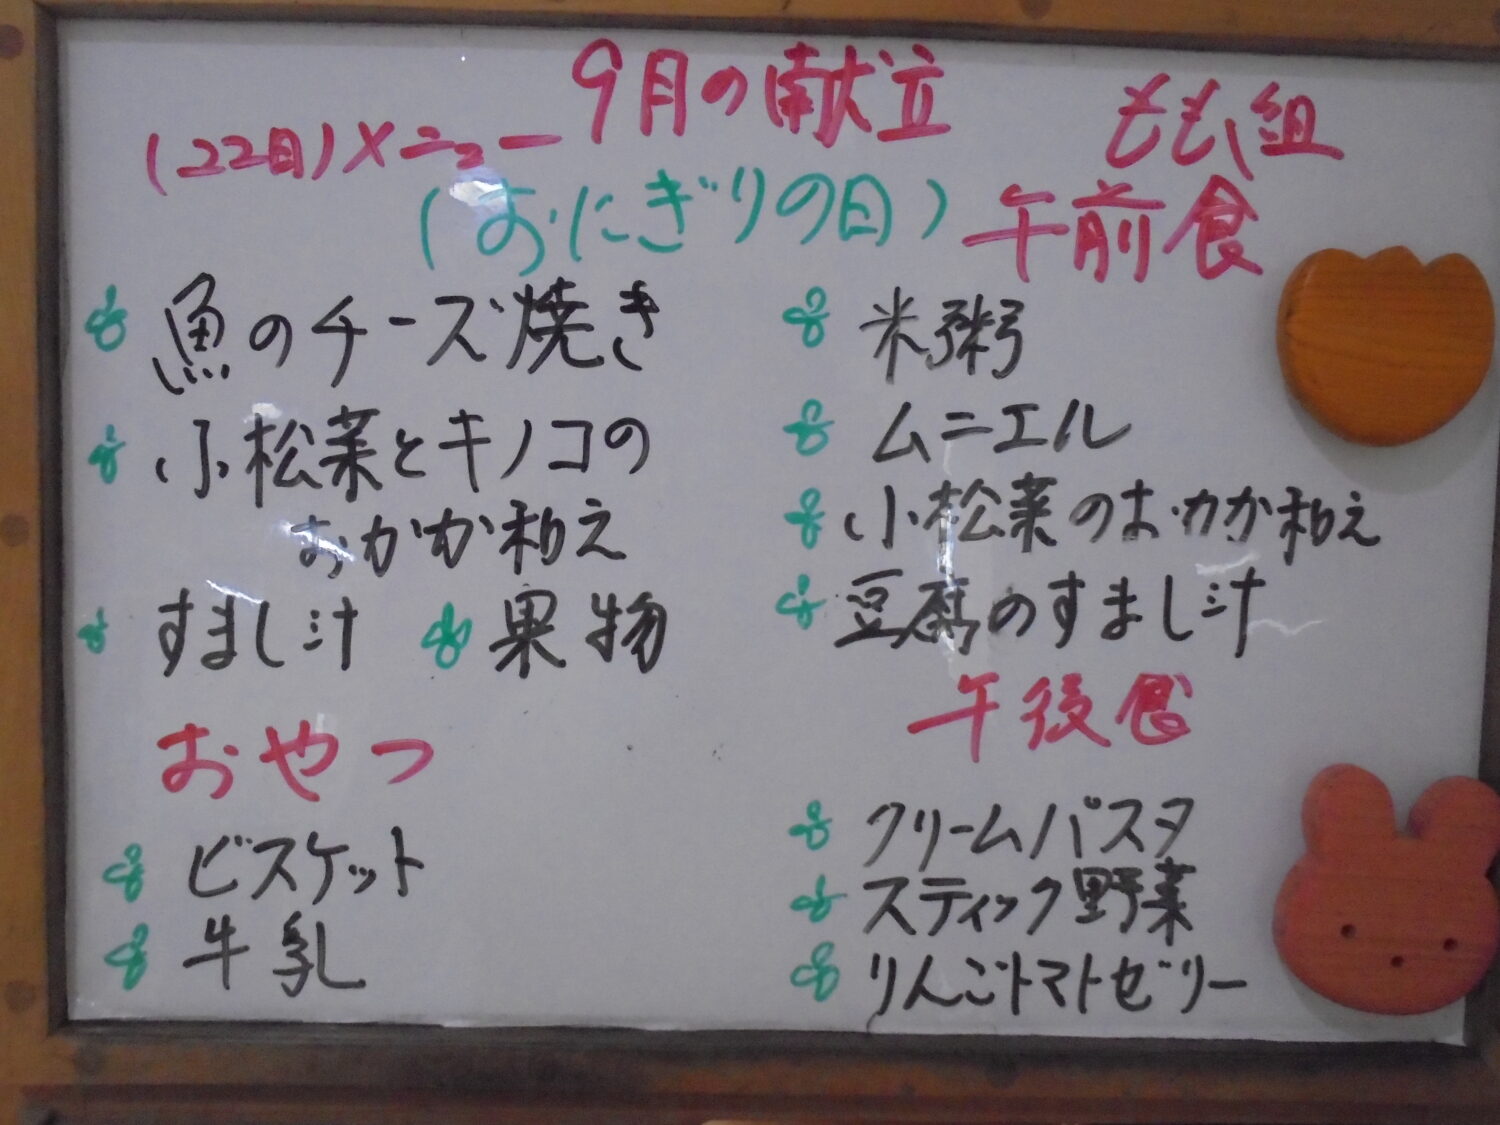 9月の献立
(22日)メニュー
(おにぎりの日)
魚のチーズ焼き
小松菜とキノコの
おかか和え
すまし汁 果物
おやつ
ビスケット
牛乳
もも組
午前食
米粥
ムニエル
小松菜のおかか和え
豆腐のすまし汁
午後食
クリームパスタ
スティック野菜
りんごトマトゼリー